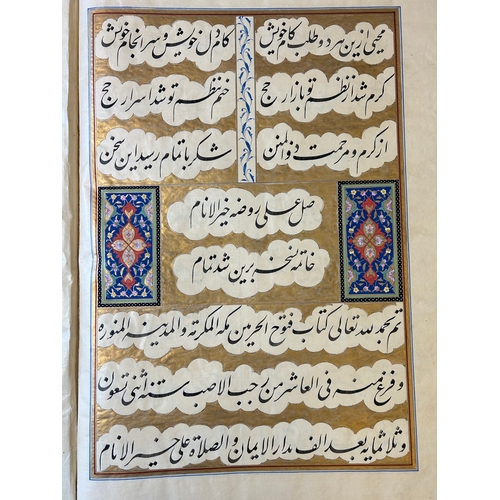 محیی ازین سرد و طلب کام خویش کام دل خویش و سرانجام خویش
گرم شد از نظم تو بازار حج ختم بنظم تو شد اسرار حج
از کرم و مرحمت ذوالمنن شکر باتمام رسید این سخن
صل علی روضه خیر الانام
خاتمه نسخه برین شد تمام
تم بحمد لله تعالی کتاب فتوح الحرمین مکه المکرمة والمدینه المنوره
و فرغ منه فی العاشر من رجب الاصب سنه اثنی تسعون
وثلاثمایه بعد الف مدار الایمان والصلاة علی خیر الانام